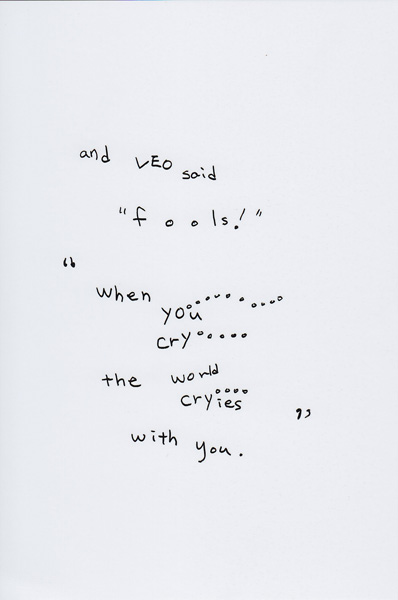 and VEO said
"fools!"
"when
you
cry
the world
cryies"
with you.